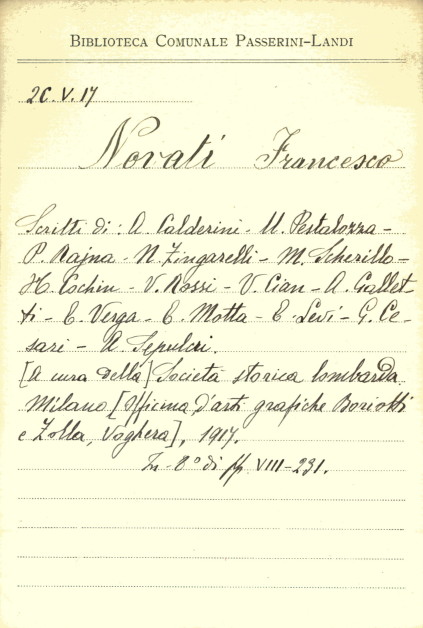 BIBLIOTECA COMUNALE PASSERINI-LANDI
2C.V.17
Novati Francesco
Scritti di: A. Calderini - U. Pestalozza -
P. Rajna - N. Zingarelli - M. Scherillo -
H. Cochin - V. Rossi - V. Cian - A. Gallet-
ti - E. Verga - E. Motta - E. Levi - G. Ce-
sari - A. Sepulcri.
[A cura della] Società storica lombarda.
Milano [Officina d'arti grafiche Boriotti
e Zolla, Voghera], 1917.
In-8° di pp VIII-231.